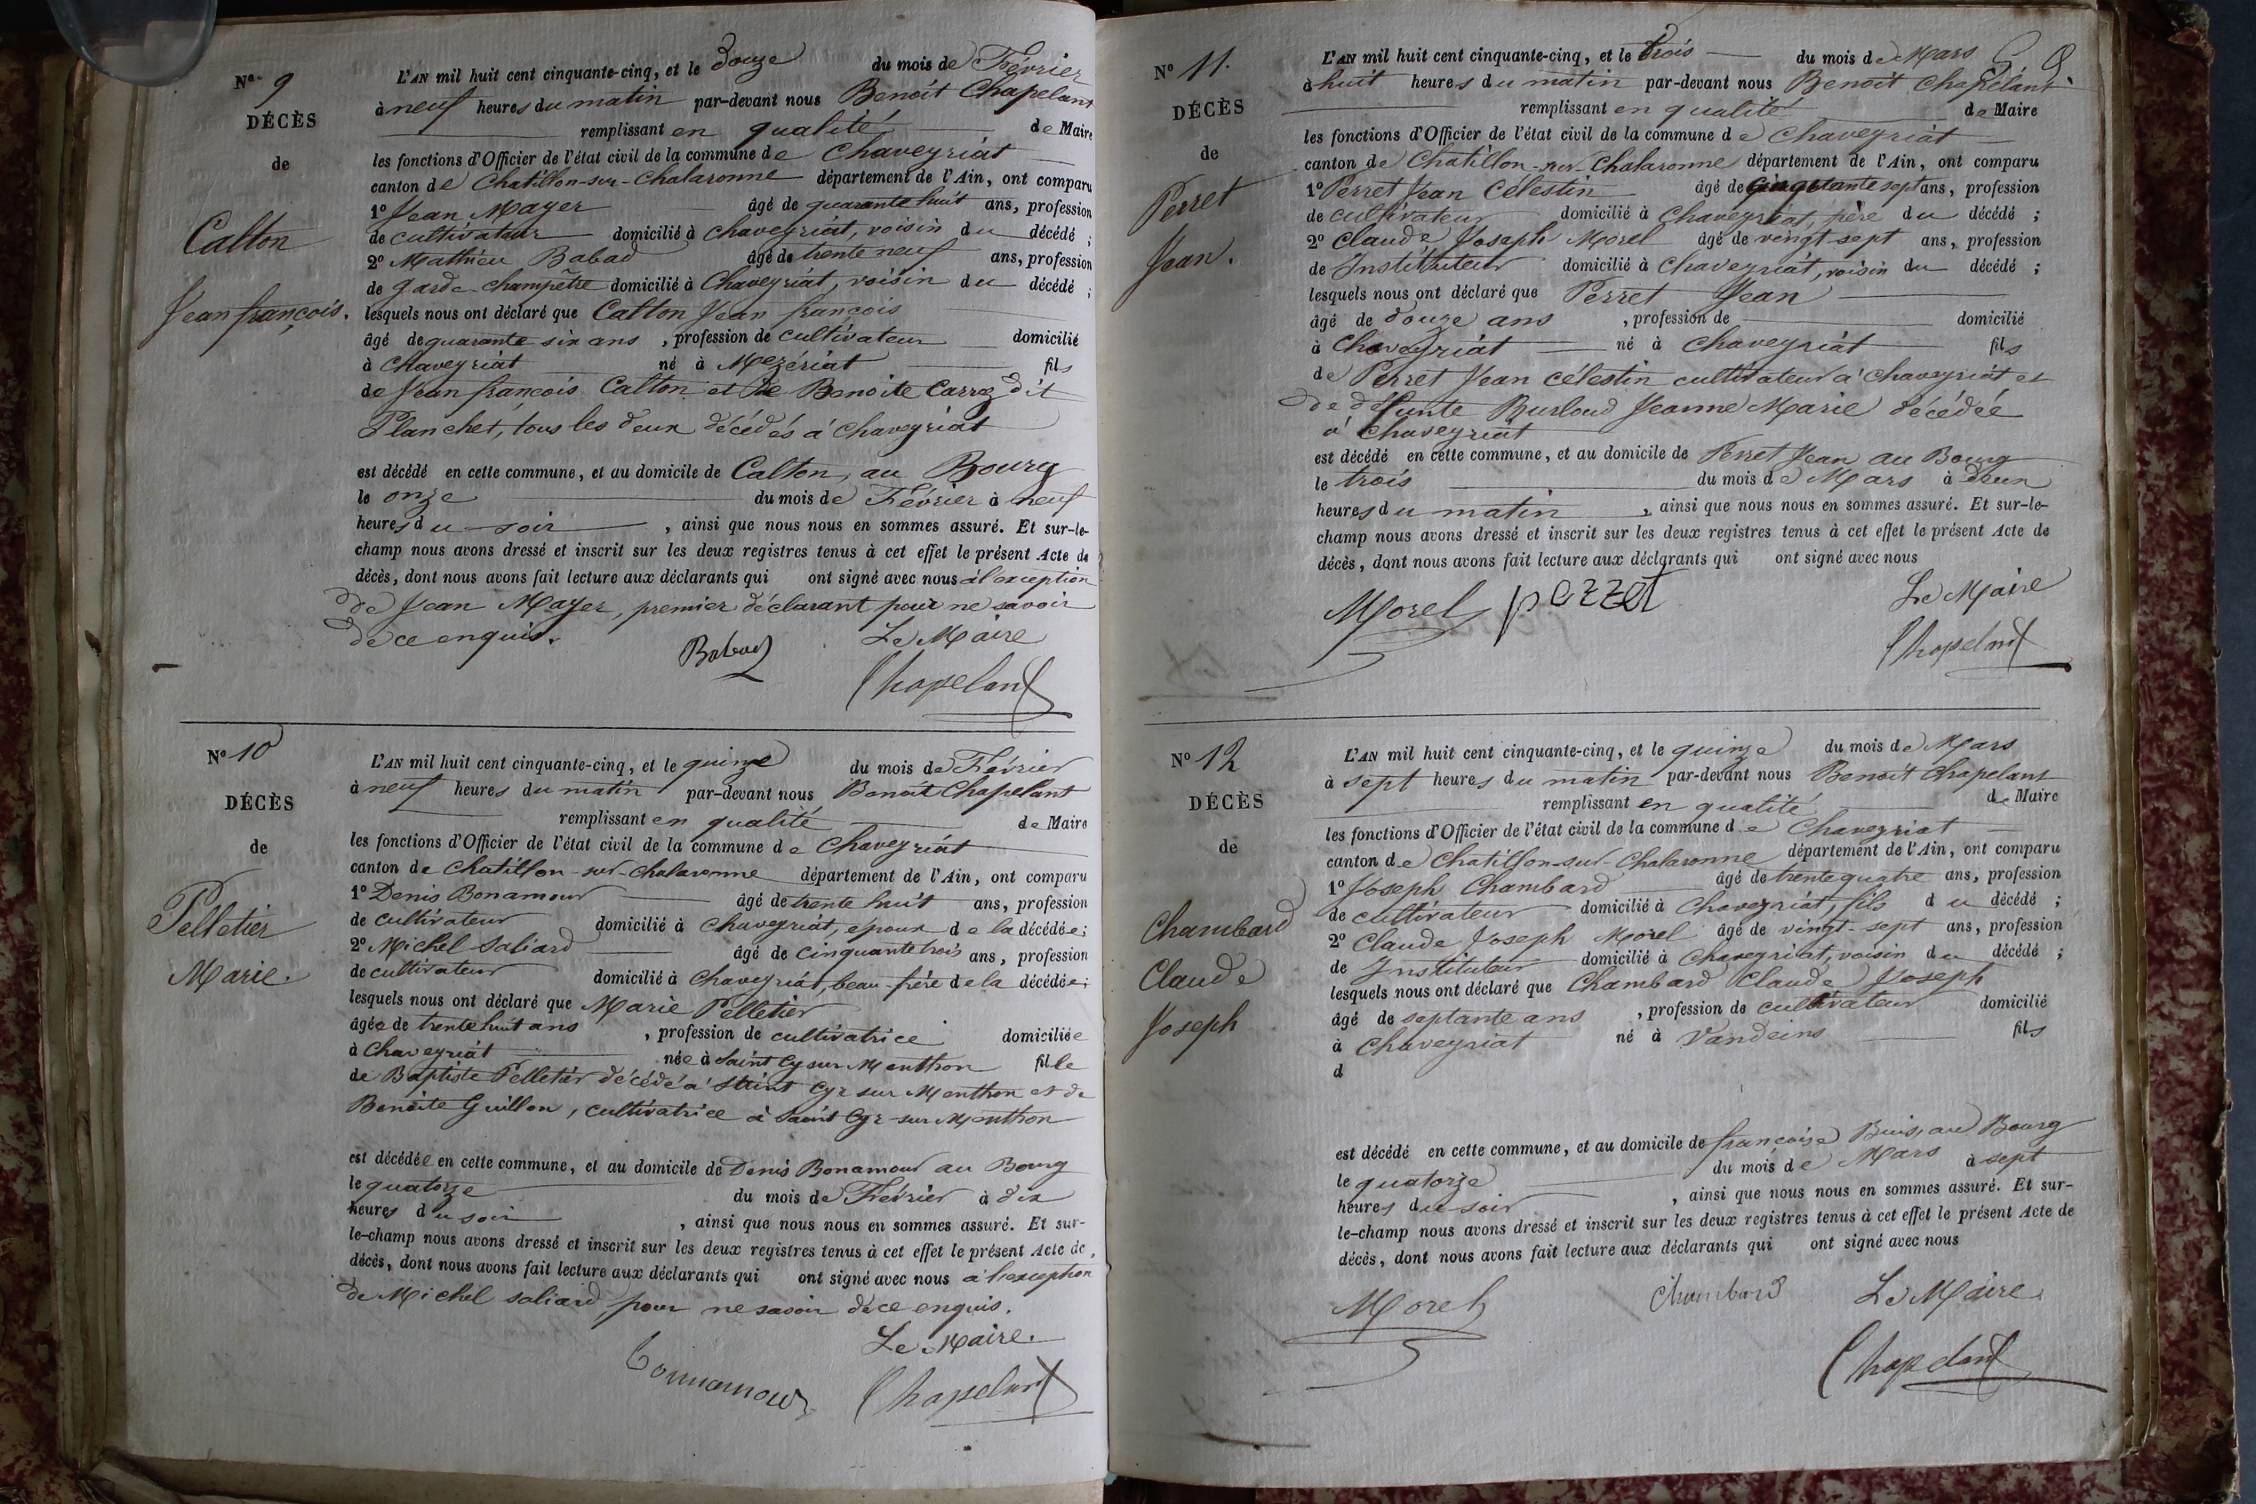 N° 9
DÉCÈS
de
Calton
Jean françois.
L'AN mil huit cent cinquante-cinq, et le douze du mois de Février
à neuf heures du matin par-devant nous Benoît Chapelant
remplissant en qualité de Maire
les fonctions d'Officier de l'état civil de la commune de Chaveyriat
canton de Chatillon-sur-Chalaronne département de l'Ain, ont comparu
1° Jean Mayer âgé de quarante huit ans, profession
de cultivateur domicilié à Chaveyriat, voisin du décédé ;
2° Mathieu Babad âgé de trente neuf ans, profession
de garde-champêtre domicilié à Chaveyriat, voisin du décédé ;
lesquels nous ont déclaré que Calton Jean françois
âgé de quarante six ans , profession de cultivateur domicilié
à Chaveyriat né à Mezériat fils
de Jean françois Calton et de Benoite Carroz dit
Planchet, tous les deux décédés à Chaveyriat
est décédé en cette commune, et au domicile de Calton, au Bourg
le onze du mois de Février à neuf
heures du soir , ainsi que nous nous en sommes assuré. Et sur-le-
champ nous avons dressé et inscrit sur les deux registres tenus à cet effet le présent Acte de
décès, dont nous avons fait lecture aux déclarants qui ont signé avec nous à l'exception
de Jean Mayer, premier déclarant pour ne savoir
de ce enquis.
Babad
Le Maire
Chapelant
N° 10
DÉCÈS
de
Pelletier
Marie.
L'AN mil huit cent cinquante-cinq, et le quinze du mois de Février
à neuf heures du matin par-devant nous Benoît Chapelant
remplissant en qualité de Maire
les fonctions d'Officier de l'état civil de la commune de Chaveyriat
canton de Chatillon-sur-Chalaronne département de l'Ain, ont comparu
1° Denis Bonamour âgé de trente huit ans, profession
de cultivateur domicilié à Chaveyriat, époux de la décédée ;
2° Michel Saliard âgé de cinquante trois ans, profession
de cultivateur domicilié à Chaveyriat, beau-frère de la décédée ;
lesquels nous ont déclaré que Marie Pelletier
âgée de trente huit ans , profession de cultivatrice domiciliée
à Chaveyriat née à Saint Cy sur Menthon fille
de Baptiste Pelletier décédé à Saint Cyr sur Menthon et de
Benoite Guillon, cultivatrice à Saint Cyr-sur Menthon
est décédée en cette commune, et au domicile de Denis Bonamour au Bourg
le quatorze du mois de Février à dix
heures du soir , ainsi que nous nous en sommes assuré. Et sur-
le-champ nous avons dressé et inscrit sur les deux registres tenus à cet effet le présent Acte de
décès, dont nous avons fait lecture aux déclarants qui ont signé avec nous à l'exception
de Michel Saliard pour ne savoir de ce enquis.
Le Maire.
Bonnamour
Chapelant
N° 11.
DÉCÈS
de
Perret
Jean.
L'AN mil huit cent cinquante-cinq, et le trois du mois de Mars
à huit heures du matin par-devant nous Benoît Chapelant
remplissant en qualité de Maire
les fonctions d'Officier de l'état civil de la commune de Chaveyriat
canton de Chatillon-sur-Chalaronne département de l'Ain, ont comparu
1° Perret Jean Célestin âgé de cinquante sept ans, profession
de cultivateur domicilié à Chaveyriat, père du décédé ;
2° Claude Joseph Morel âgé de vingt-sept ans, profession
de Instituteur domicilié à Chaveyriat, voisin du décédé ;
lesquels nous ont déclaré que Perret Jean
âgé de douze ans , profession de domicilié
à Chaveyriat né à Chaveyriat fils
de Perret Jean Célestin cultivateur à Chaveyriat et
de défunte Burloud Jeanne Marie décédée
à Chaveyriat
est décédé en cette commune, et au domicile de Perret Jean au Bourg
le trois du mois de Mars à deux
heures du matin , ainsi que nous nous en sommes assuré. Et sur-le-
champ nous avons dressé et inscrit sur les deux registres tenus à cet effet le présent Acte de
décès, dont nous avons fait lecture aux déclarants qui ont signé avec nous
Morel perret
Le Maire
Chapelant
N° 12
DÉCÈS
de
Chambard
Claude
Joseph
L'AN mil huit cent cinquante-cinq, et le quinze du mois de Mars
à sept heures du matin par-devant nous Benoît Chapelant
remplissant en qualité de Maire
les fonctions d'Officier de l'état civil de la commune de Chaveyriat
canton de Chatillon-sur-Chalaronne département de l'Ain, ont comparu
1° Joseph Chambard âgé de trente quatre ans, profession
de cultivateur domicilié à Chaveyriat, fils du décédé ;
2° Claude Joseph Morel âgé de vingt-sept ans, profession
de Instituteur domicilié à Chaveyriat, voisin du décédé ;
lesquels nous ont déclaré que Chambard Claude Joseph
âgé de septante ans , profession de cultivateur domicilié
à Chaveyriat né à Vandeins fils
d
est décédé en cette commune, et au domicile de françoise Buis, au Bourg
le quatorze du mois de Mars à sept
heures du soir , ainsi que nous nous en sommes assuré. Et sur-
le-champ nous avons dressé et inscrit sur les deux registres tenus à cet effet le présent Acte de
décès, dont nous avons fait lecture aux déclarants qui ont signé avec nous
Morel Chambard Le Maire
Chapelant